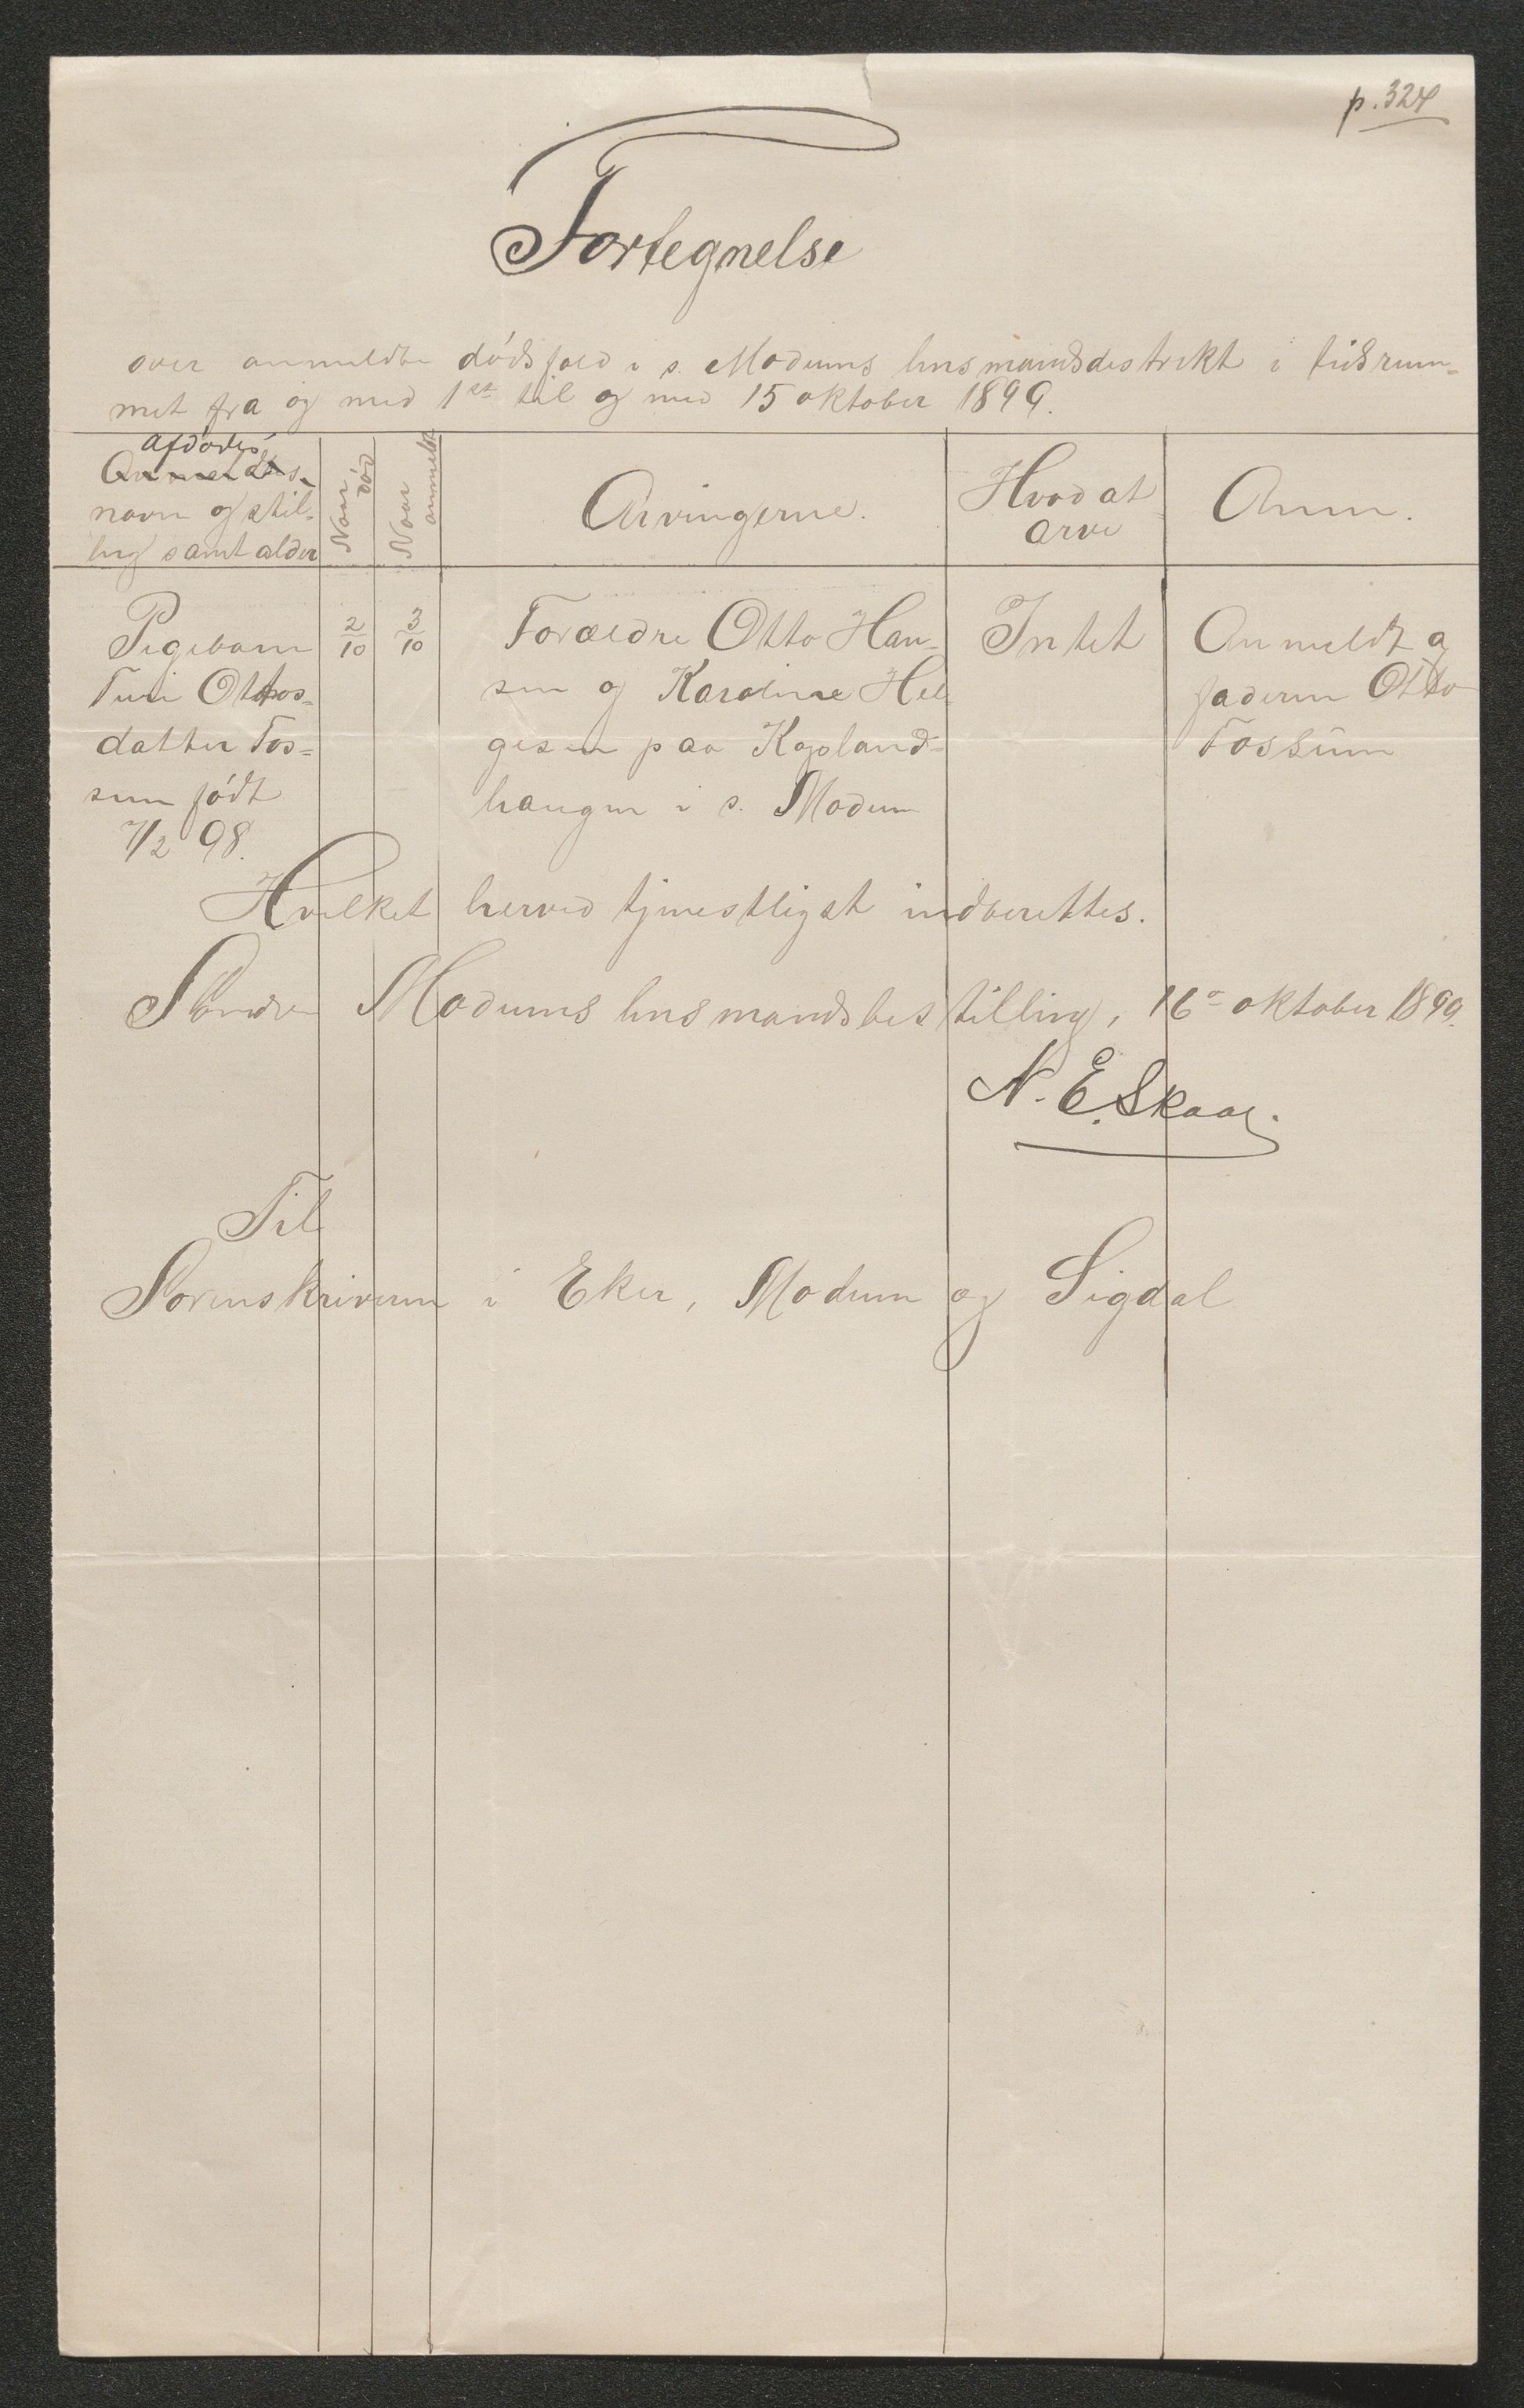 p. 324
Fortegnelse
over anmeldte dödsfald i s. Modums lensmandsdistrikt i tidsrum-
met fra og med 1ste til og med 15 oktober 1899.
Afdødes
Anmeldtes
navn og stil-
ling samt alder
Naar död
Naar anmeldt
Arvingerne.
Hvad at
arve
Anm.
Pigebarn
Turi Ottos-
datter Fos-
sum födt
7/2 98.
2/10
3/10
Forældre Otto Han-
sen og Karoline Hel-
gesen paa Kopland-
haugen i s. Modum
Intet
Anmeldt af
faderen Otto
Fossum
Hvilket herved tjenestligst indberettes.
Söndre Modums lensmandsbestilling, 16de oktober 1899.
N. E. Skaar.
Til
Sorenskriveren i Eker, Modum og Sigdal